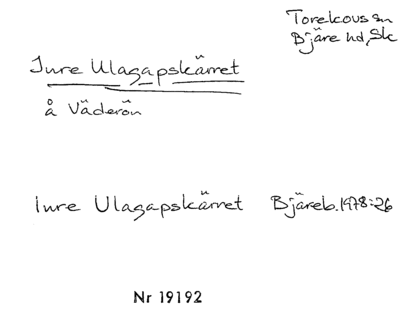 Torekovs sn
Bjäre hd, Sk
Inre Ulagapskärret
å Väderön
Inre Ulagapskärret Bjäreb. 1978:26
Nr 19192